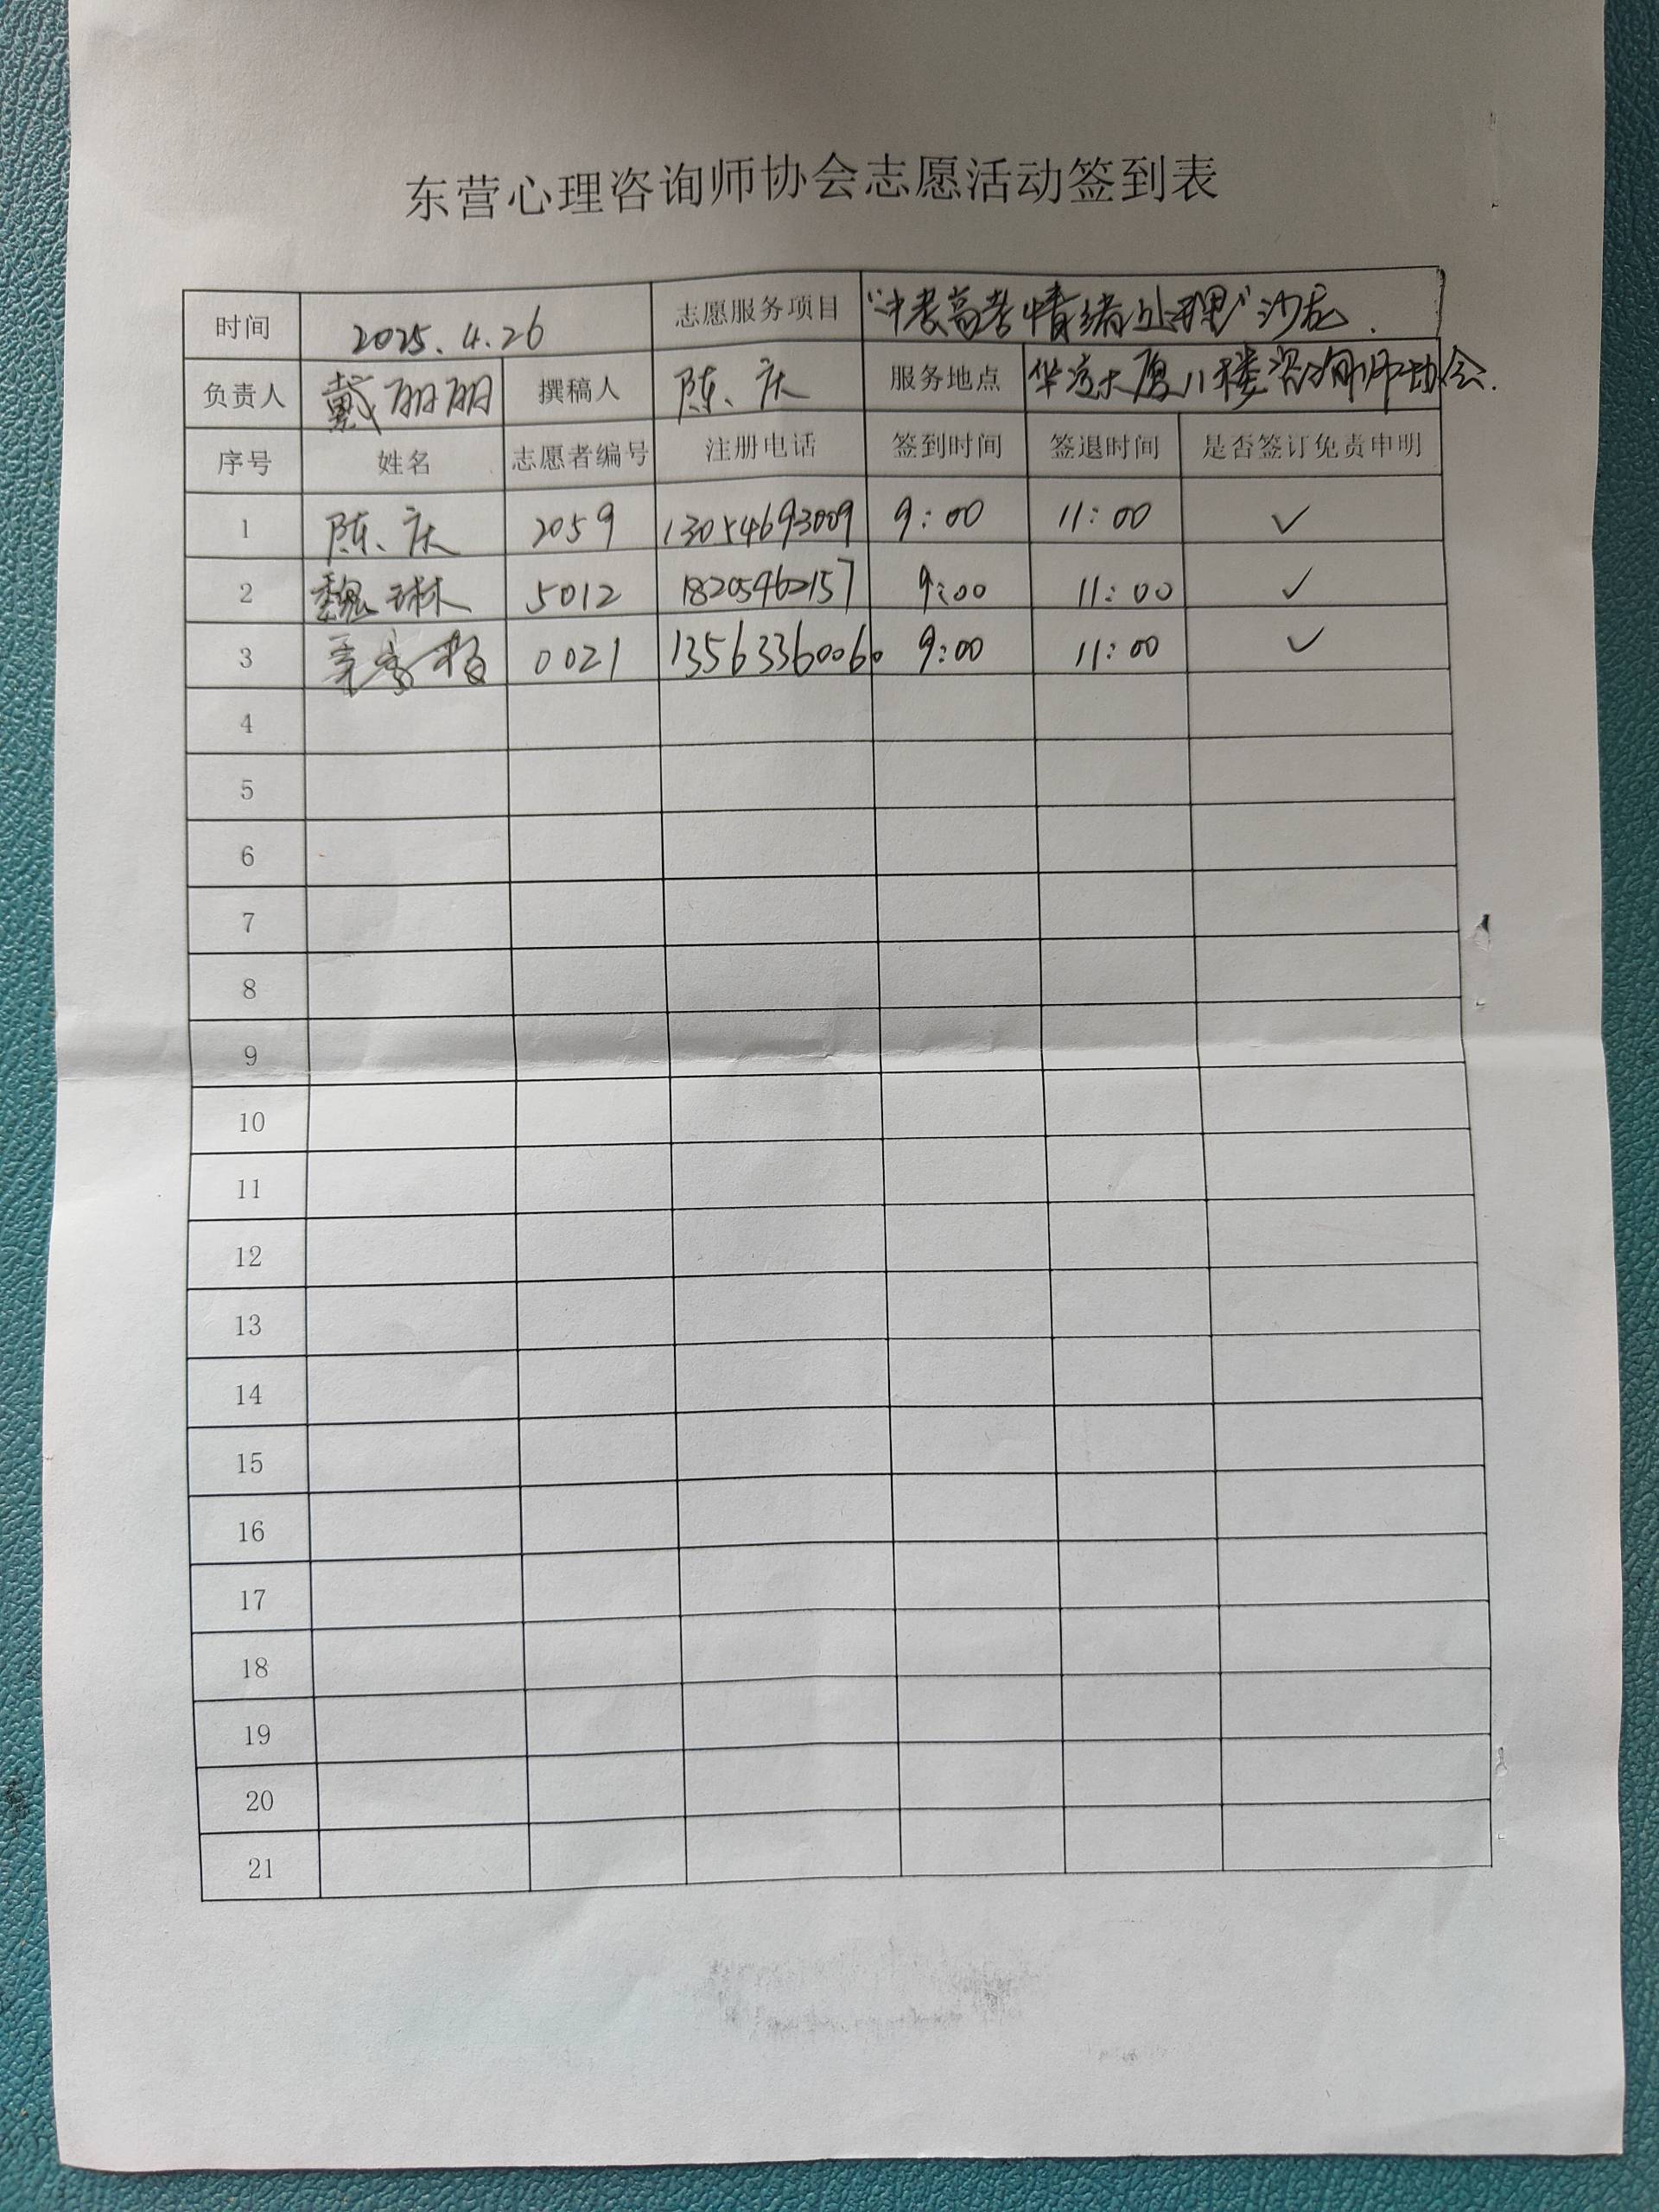 东营心理咨询师协会志愿活动签到表
时间 2025.4.26 志愿服务项目 “中考高考情绪处理”沙龙.
负责人 戴丽丽 撰稿人 陈庆 服务地点 华运大厦11楼咨询师协会.
序号 姓名 志愿者编号 注册电话 签到时间 签退时间 是否签订免责申明
1 陈庆 2059 13054693009 9:00 11:00 ✓
2 魏琳 5012 18205462157 9:00 11:00 ✓
3 0021 13563360060 9:00 11:00 ✓
4
5
6
7
8
9
10
11
12
13
14
15
16
17
18
19
20
21